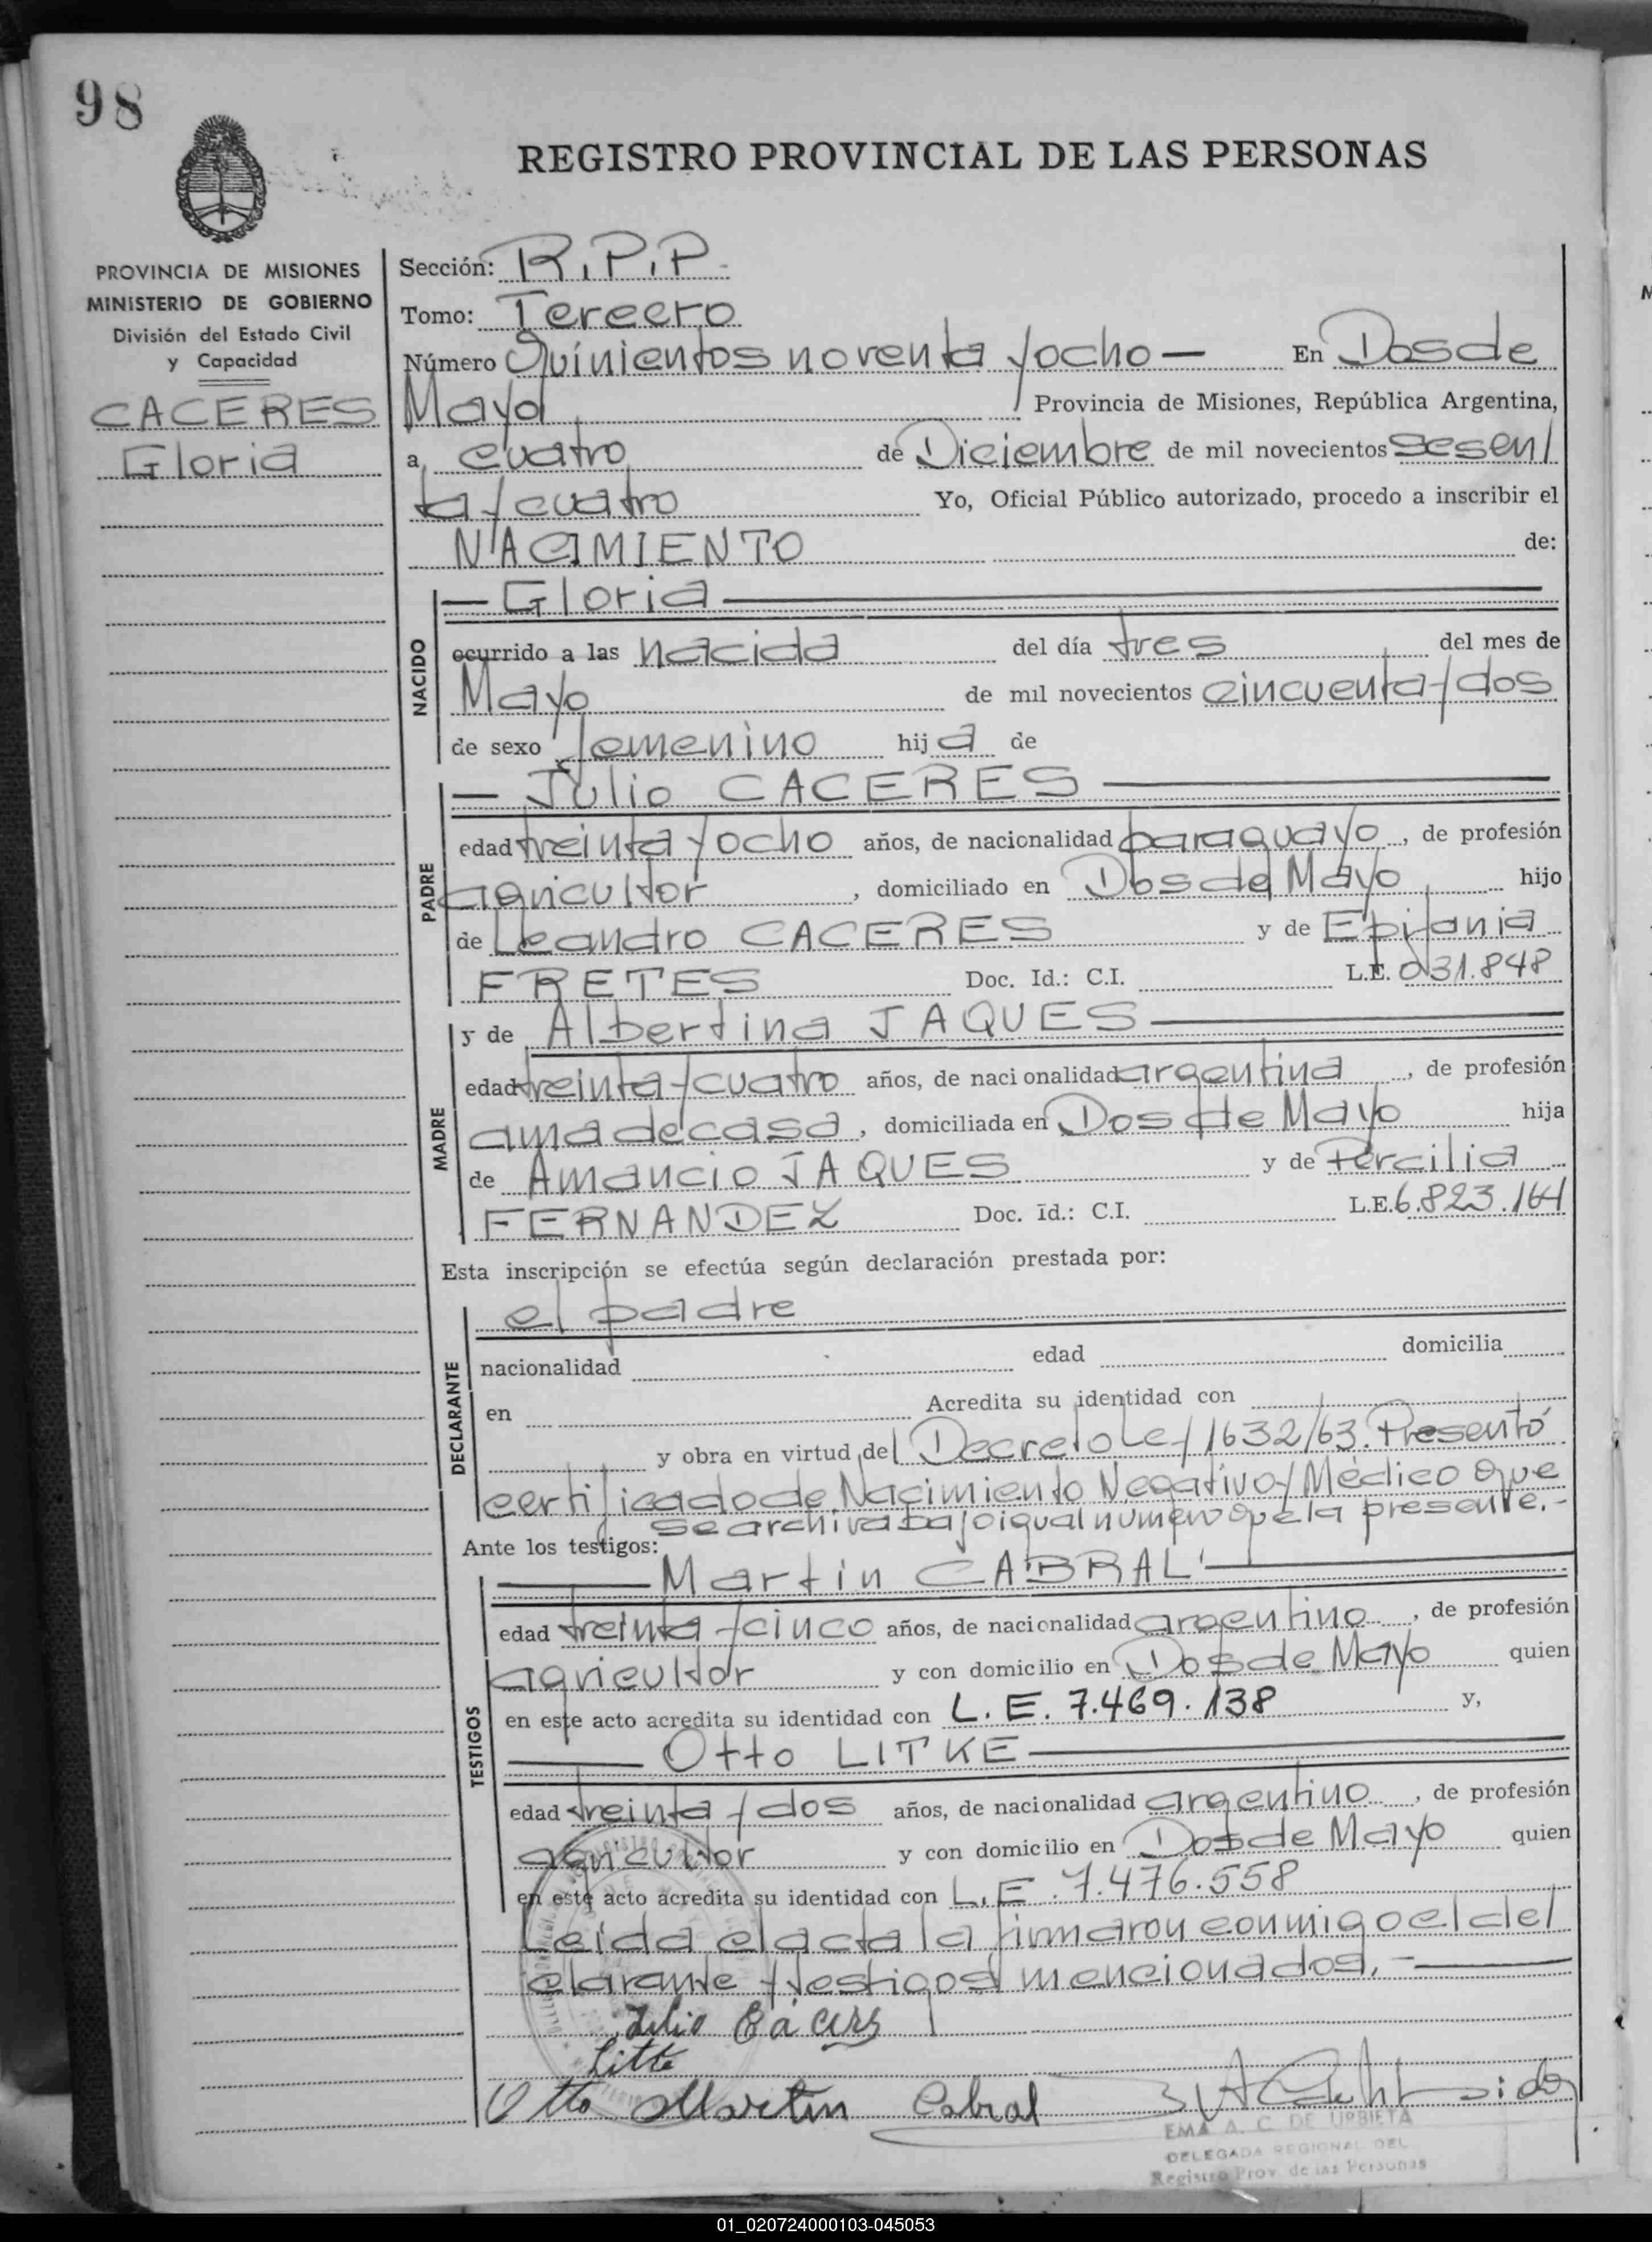 98
REGISTRO PROVINCIAL DE LAS PERSONAS
PROVINCIA DE MISIONES
MINISTERIO DE GOBIERNO
División del Estado Civil
y Capacidad
CACERES
Gloria
Sección: R.P.P.
Tomo: Tercero
Número Quinientos noventa y ocho — En Dos de
Mayo Provincia de Misiones, República Argentina,
a cuatro de Diciembre de mil novecientos sesen/
ta y cuatro Yo, Oficial Público autorizado, procedo a inscribir el
NACIMIENTO de:
NACIDO
— Gloria —
ocurrido a las nacida del día tres del mes de
Mayo de mil novecientos cincuenta y dos
de sexo femenino hija de
PADRE
— Julio CACERES —
edad treinta y ocho años, de nacionalidad paraguayo, de profesión
agricultor, domiciliado en Dos de Mayo hijo
de Leandro CACERES y de Epifania
FRETES Doc. Id.: C.I. L.E. 031.848
MADRE
y de Albertina JAQUES —
edad treinta y cuatro años, de nacionalidad argentina, de profesión
ama de casa, domiciliada en Dos de Mayo hija
de Amancio JAQUES y de Percilia
FERNANDEZ Doc. Id.: C.I. L.E. 6.823.164
Esta inscripción se efectúa según declaración prestada por:
DECLARANTE
el padre
nacionalidad edad domicilia
en Acredita su identidad con
y obra en virtud del Decreto Ley 1632/63. Presentó
certificado de Nacimiento Negativo y Médico que
se archiva bajo igual número que la presente.-
Ante los testigos:
TESTIGOS
— Martin CABRAL —
edad treinta y cinco años, de nacionalidad argentino, de profesión
agricultor y con domicilio en Dos de Mayo quien
en este acto acredita su identidad con L.E. 7.469.138 y,
— Otto LITKE —
edad treinta y dos años, de nacionalidad argentino, de profesión
agricultor y con domicilio en Dos de Mayo quien
en este acto acredita su identidad con L.E. 7.476.558
Leida el acta la firmaron conmigo el de/
clarante y testigos mencionados.- —
Julio
Otto Martin Cabral
EMA A. C. DE URBIETA
DELEGADA REGIONAL DEL
Registro Prov. de las Personas
01_020724000103-045053